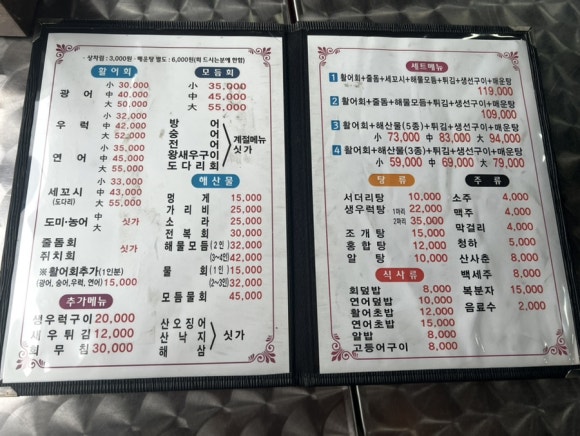 · 상차림 : 3,000원 · 매운탕 별도 : 6,000원(회 드시는분에 한함)
활어회
광 어 小 30,000
中 40,000
大 50,000
우 럭 小 32,000
中 42,000
大 52,000
연 어 小 35,000
中 45,000
大 55,000
세꼬시 (도다리) 小 33,000
中 43,000
大 55,000
도미·농어 中 大 싯가
줄돔회
쥐치회 싯가
※활어회추가(1인분)
(광어, 숭어, 우럭, 연어) 15,000
추가메뉴
생우럭구이 20,000
새우튀김 12,000
회 무 침 30,000
모듬회
小 35,000
中 45,000
大 55,000
방 어
숭 어
전 어
왕새우구이
도다리회
계절메뉴
싯가
해산물
멍 게 15,000
가 리 비 25,000
소 라 25,000
전 복 회 30,000
해물모듬 (2인) 32,000
(3~4인) 42,000
물 회 (1인) 15,000
(2~3인) 32,000
모듬물회 45,000
산오징어
산 낙 지
해 삼
싯가
세트메뉴
1 활어회+줄돔+세꼬시+해물모듬+튀김+생선구이+매운탕
119,000
2 활어회+줄돔+해물모듬+튀김+생선구이+매운탕
109,000
3 활어회+해산물(5종)+튀김+생선구이+매운탕
小 73,000 中 83,000 大 94,000
4 활어회+해산물(3종)+튀김+생선구이+매운탕
小 59,000 中 69,000 大 79,000
탕 류
서더리탕 10,000
생우럭탕 1마리 22,000
2마리 35,000
조 개 탕 15,000
홍 합 탕 12,000
알 탕 10,000
식사류
회덮밥 8,000
연어덮밥 10,000
활어초밥 12,000
연어초밥 15,000
알밥 8,000
고등어구이 8,000
주 류
소주 4,000
맥주 4,000
막걸리 4,000
청하 5,000
산사춘 8,000
백세주 8,000
복분자 15,000
음료수 2,000